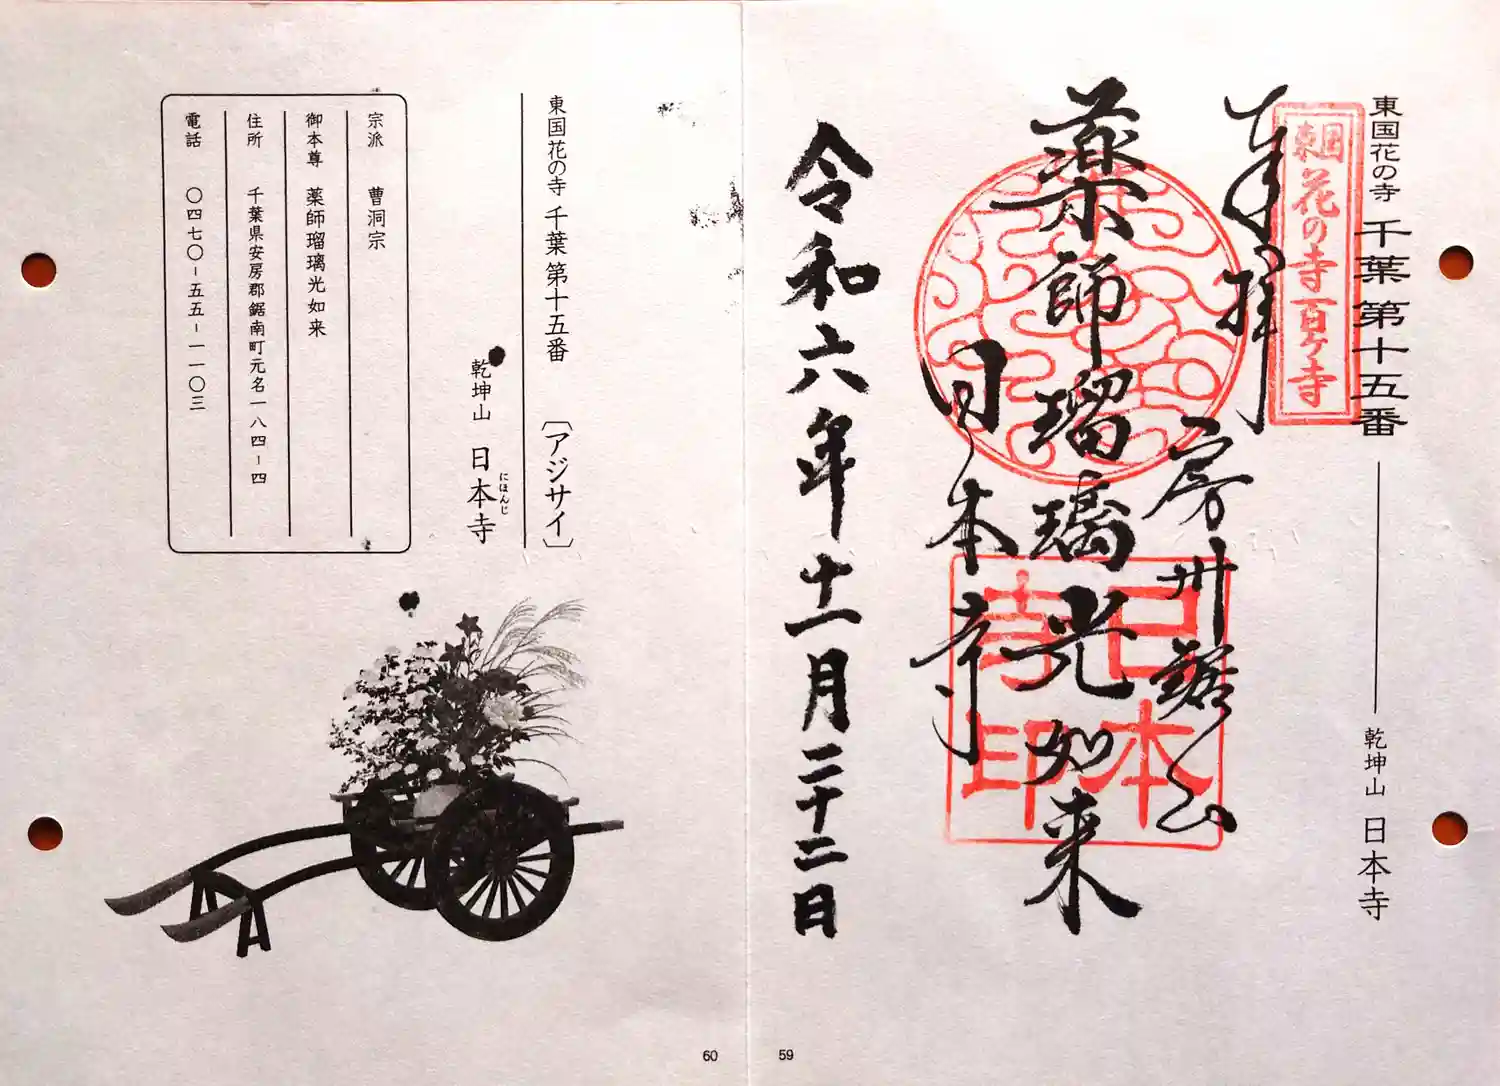 東国花の寺 千葉 第十五番 乾坤山 日本寺
東国花の寺百ヶ寺
奉拝
房州鋸山
薬師瑠璃光如来
日本寺
日本寺印
令和六年十一月二十二日
59
東国花の寺 千葉 第十五番 〔アジサイ〕
乾坤山 日本寺
にほんじ
宗派 曹洞宗
御本尊 薬師瑠璃光如来
住所 千葉県安房郡鋸南町元名一八四-四
電話 〇四七〇-五五-一一〇三
60